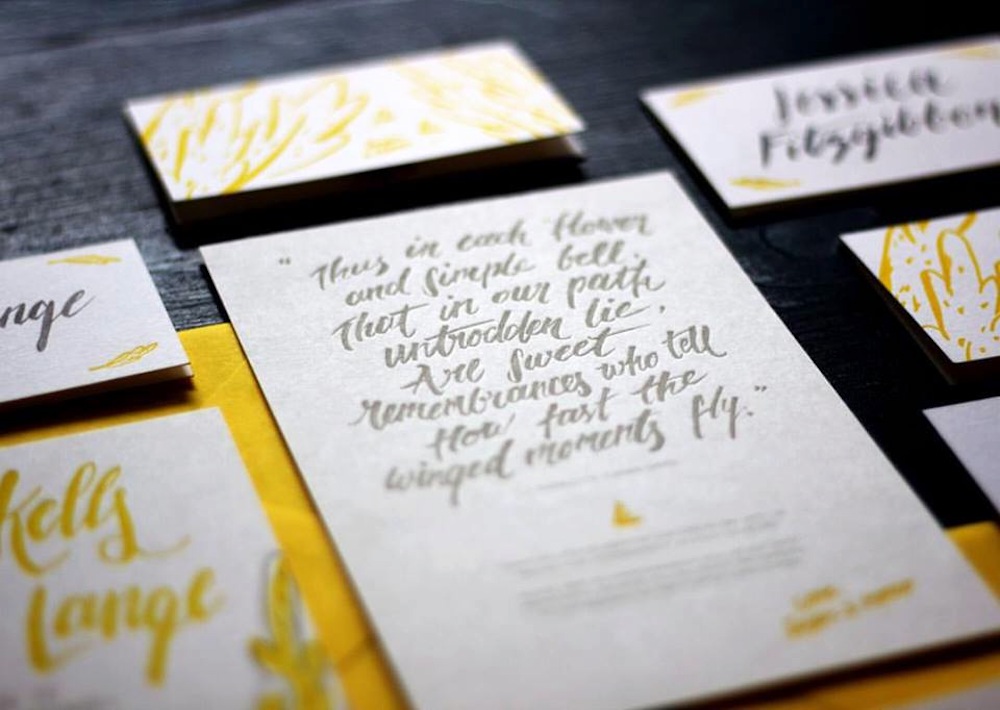 Jessica
Fitzgibbon
nge
" Thus in each flower
and simple bell,
That in our path
untrodden lie,
Are sweet
remembrances who tell
How fast the
winged moments fly."
Kells
Lange